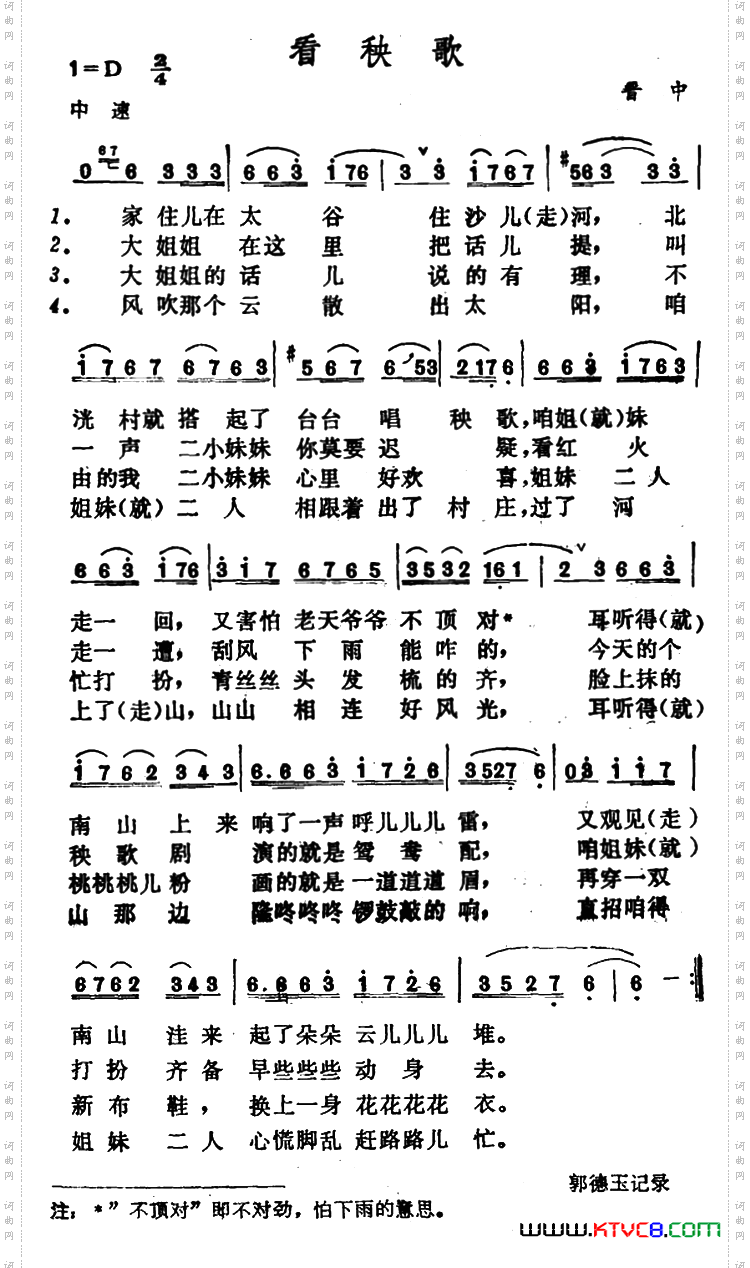 看秧歌
1=D 2/4
晋中
中速
0 67 6 3 3 3 | 6 6 3 i 76 | 3 3 i 7 6 7 | #563 3 3
1. 家住儿在太谷住沙儿(走)河，北
2. 大姐姐在这里把话儿提，叫
3. 大姐姐的话儿说的有理，不
4. 风吹那个云散出太阳，咱
i 7 6 7 6 7 6 3 | #5 6 7 6 53 | 2 17 6 | 6 6 3 i 7 6 3
洸村就搭起了台台唱秧歌，咱姐(就)妹
一声二小妹妹你莫要迟疑，看红火
由的我二小妹妹心里好欢喜，姐妹二人
姐妹(就)二人相跟着出了村庄，过了河
6 6 3 i 76 | 3 i 7 6 7 6 5 | 3532 161 | 2 3 6 6 3
走一回，又害怕老天爷爷不顶对* 耳听得(就)
走一遭，刮风下雨能咋的，今天的个
忙打扮，青丝丝头发梳的齐，脸上抹的
上了(走)山，山山相连好风光，耳听得(就)
i 7 6 2 3 4 3 | 6. 6 6 3 i 7 2 6 | 3527 6 | 0 3 i i 7
南山上来响了一声呼儿儿儿雷，又观见(走)
秧歌剧演的就是鸳鸯配，咱姐妹(就)
桃桃桃儿粉画的就是一道道道眉，再穿一双
山那边隆咚咚咚锣鼓敲的响，直招咱得
6 7 6 2 3 4 3 | 6. 6 6 3 i 7 2 6 | 3 5 2 7 6 | 6 — :‖
南山洼来起了朵朵云儿儿儿堆。
打扮齐备早些些些动身去。
新布鞋，换上一身花花花花衣。
姐妹二人心慌脚乱赶路路儿忙。
郭德玉记录
注：*”不顶对”即不对劲，怕下雨的意思。
www.KTVC8.com
词曲网